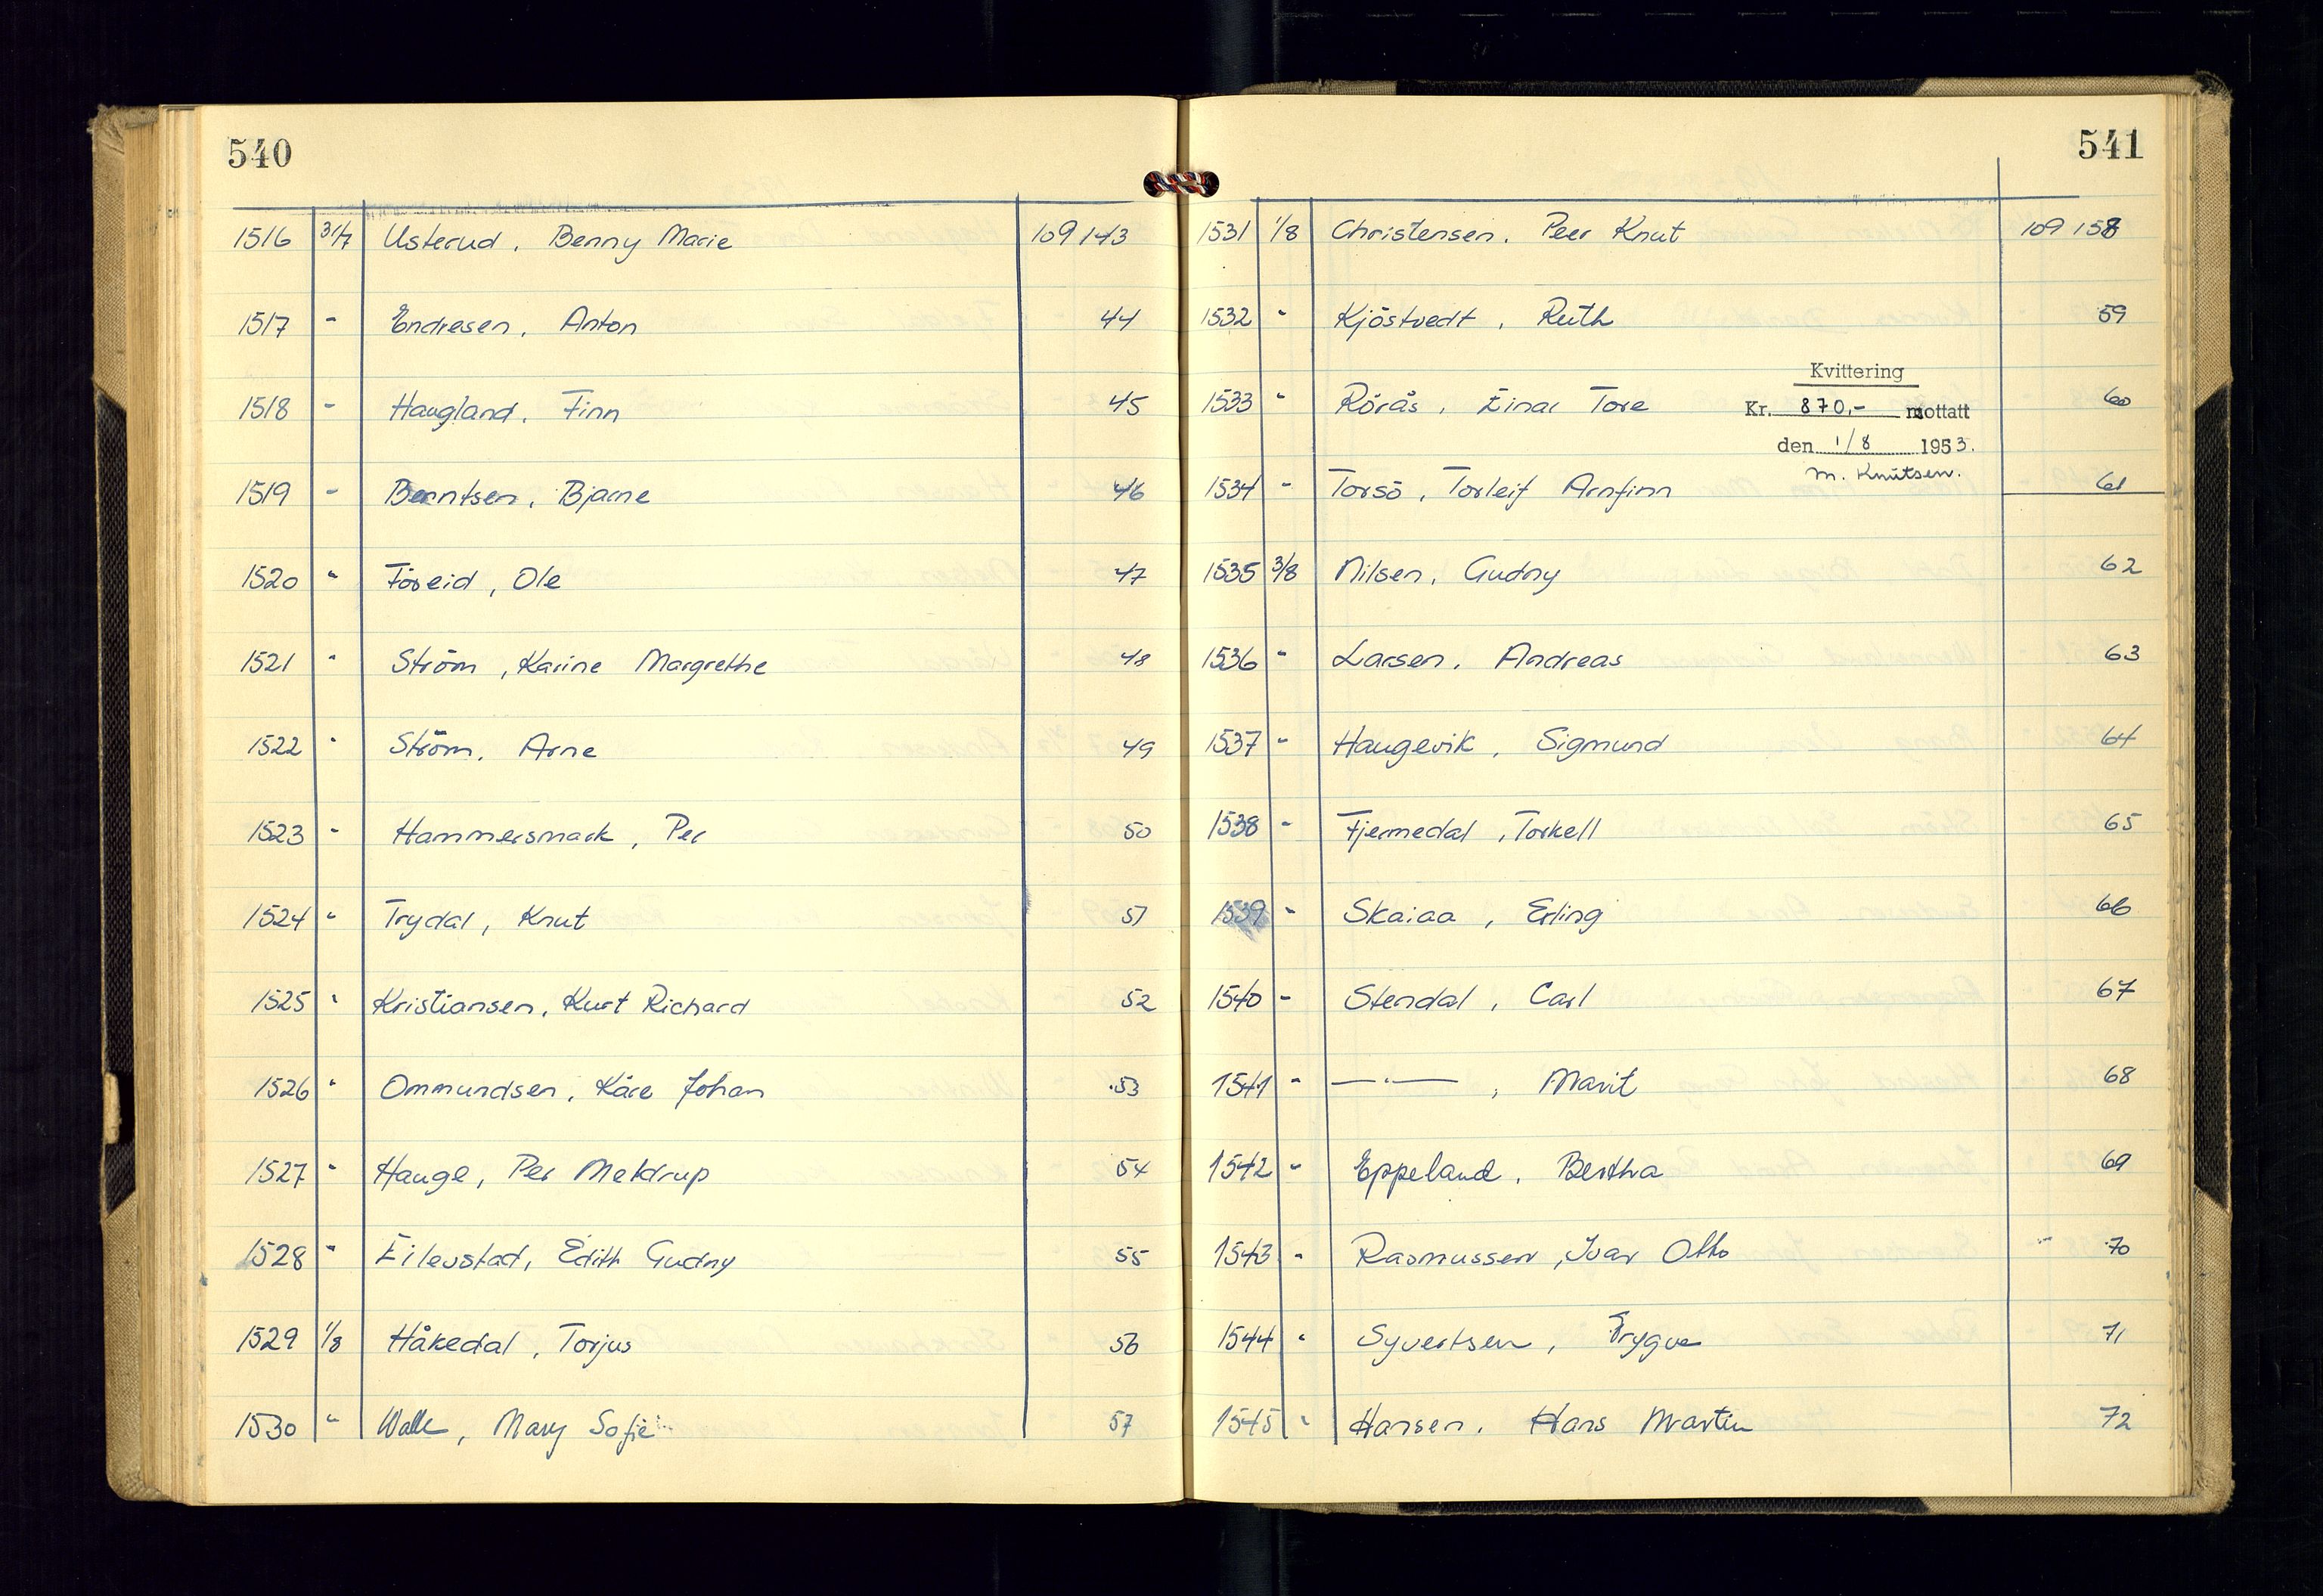 540
1516 31/7 Usterud, Benny Marie 109 143
1517 - Endresen, Anton 44
1518 - Haugland, Finn 45
1519 - Berntsen, Bjarne 46
1520 " Föreid, Ole 47
1521 " Ström, Karine Margrethe 48
1522 " Ström, Arne 49
1523 - Hammersmark, Per 50
1524 " Trydal, Knut 51
1525 " Kristiansen, Kurt Richard 52
1526 " Ommundsen, Kåre Johan 53
1527 " Hauge, Per Meldrup 54
1528 " Eilevstad, Edith Gudny 55
1529 1/8 Håkedal, Torjus 56
1530 " Walle, Mary Sofie 57
541
1531 1/8 Christensen, Peer Knut 109 158
1532 " Kjöstvedt, Ruth 59
Kvittering
1533 " Rörås, Einar Tore 60
Kr. 870,- mottatt
den 1/8 1953.
M. Knutsen.
1534 - Torsö, Torleif Arnfinn 61
1535 3/8 Nilsen, Gudny 62
1536 - Larsen, Andreas 63
1537 - Haugevik, Sigmund 64
1538 - Fjermedal, Torkell 65
1539 - Skaiaa, Erling 66
1540 - Stendal, Carl 67
1541 - —"—, Marit 68
1542 " Eppeland, Bertha 69
1543 - Rasmussen, Ivar Otto 70
1544 " Syvertsen, Trygve 71
1545 " Hansen, Hans Martin 72